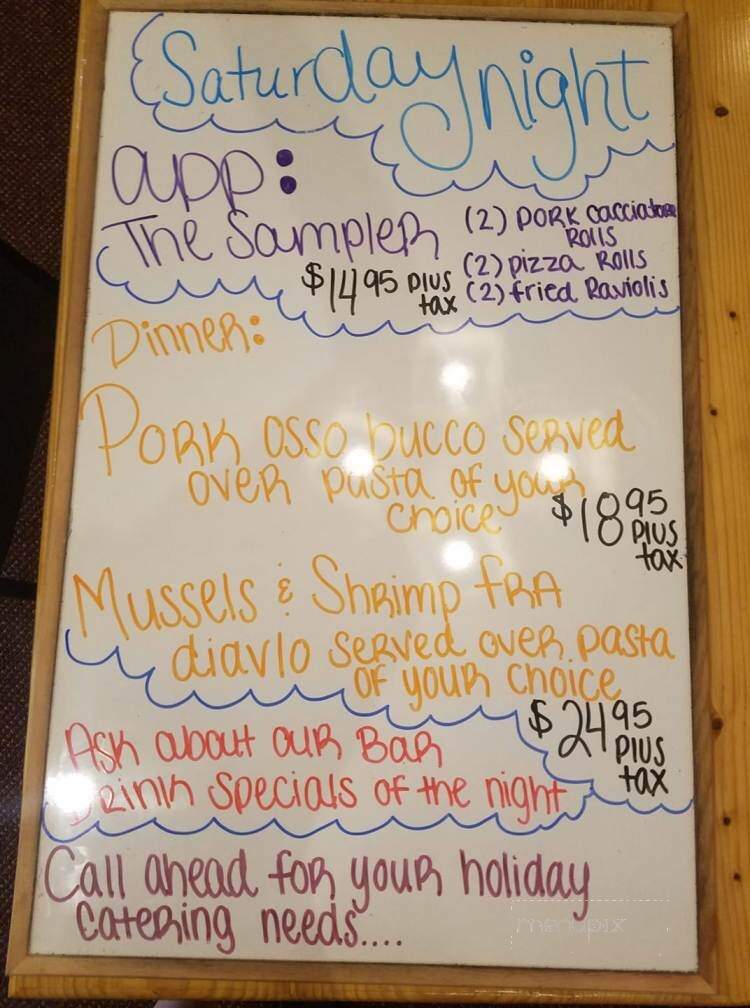 Saturday night
app:
The Sampler
$14 95 plus tax
(2) Pork cacciatore Rolls
(2) pizza Rolls
(2) fried Raviolis
Dinner:
Pork osso bucco served
over pasta of your
choice
$18 95 plus tax
Mussels & Shrimp fra
diavlo served over pasta
of your choice
$24 95 plus tax
Ask about our Bar
Drink specials of the night
Call ahead for your holiday
catering needs....
menupix